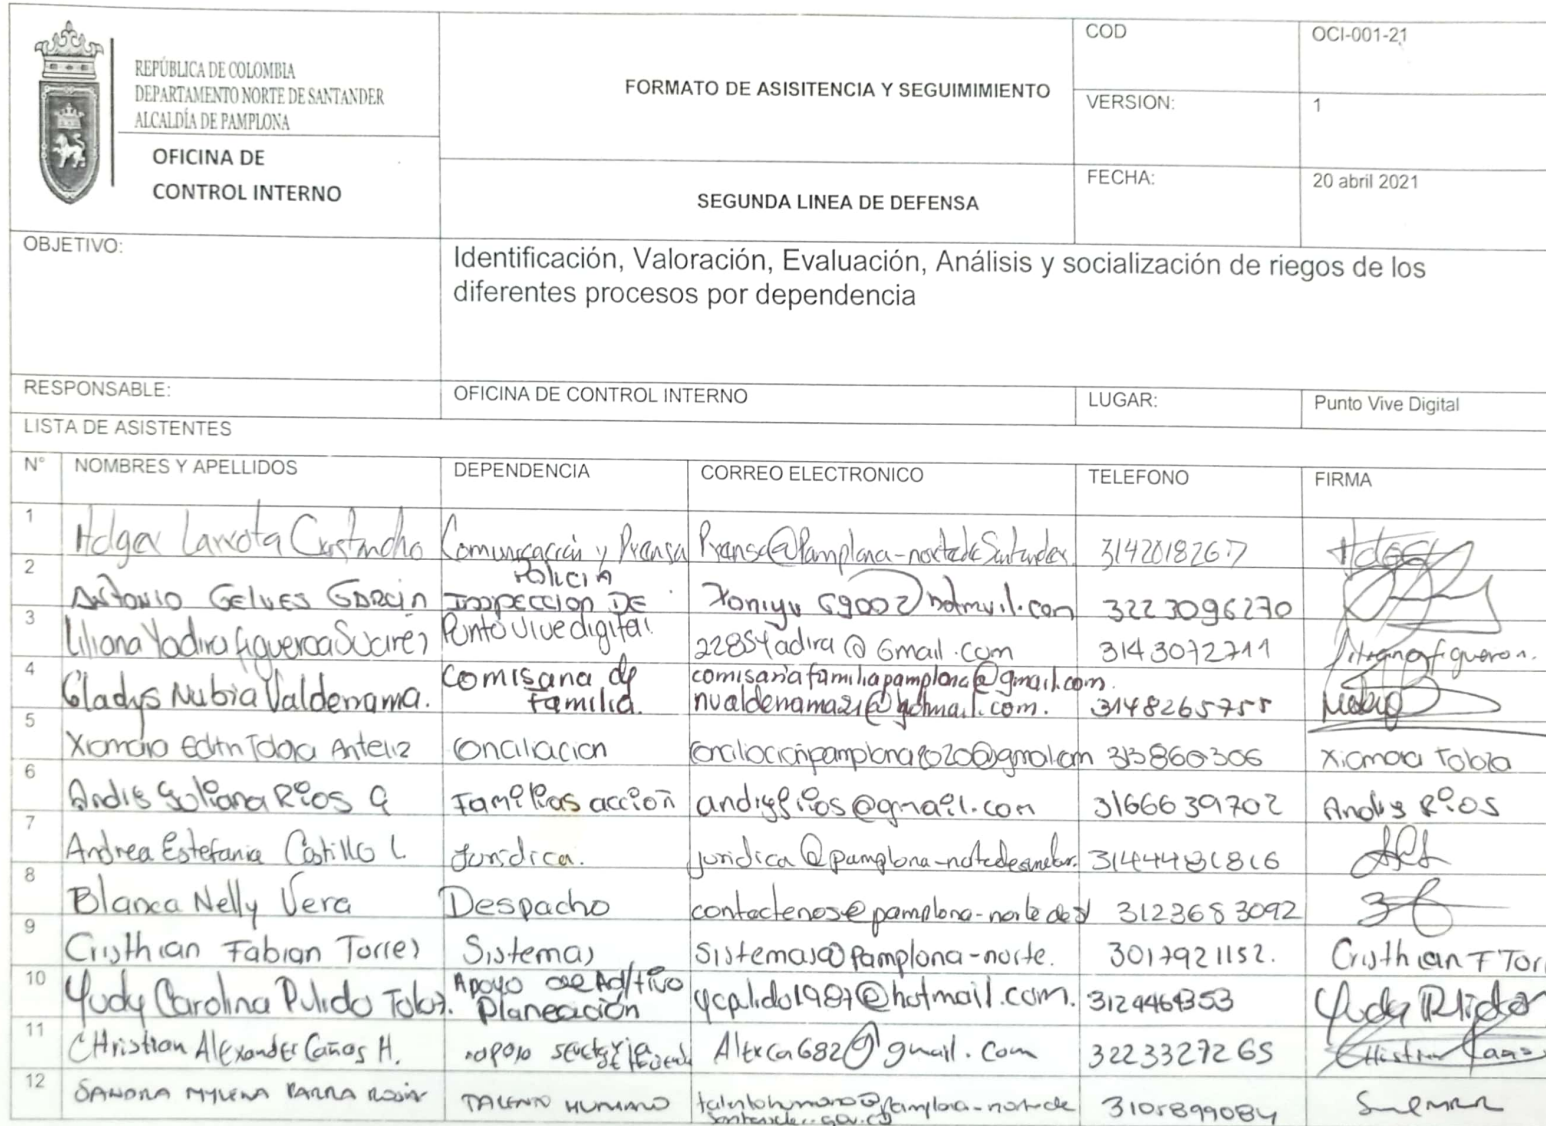 REPÚBLICA DE COLOMBIA
DEPARTAMENTO NORTE DE SANTANDER
ALCALDÍA DE PAMPLONA
OFICINA DE
CONTROL INTERNO
FORMATO DE ASISITENCIA Y SEGUIMIMIENTO
SEGUNDA LINEA DE DEFENSA
COD OCI-001-21
VERSION: 1
FECHA: 20 abril 2021
OBJETIVO: Identificación, Valoración, Evaluación, Análisis y socialización de riegos de los
diferentes procesos por dependencia
RESPONSABLE: OFICINA DE CONTROL INTERNO LUGAR: Punto Vive Digital
LISTA DE ASISTENTES
N° NOMBRES Y APELLIDOS DEPENDENCIA CORREO ELECTRONICO TELEFONO FIRMA
1 Holger Larrota Comunicación y Prensa Prensa@Pamplona-nortedeSantander. 3142018267
2 Antonio Gelves Garcia INSPECCION DE POLICIA 3223096270
3 Liliana Yadira Figueroa Suarez Punto Vive digital 22854yadira@Gmail.com 3143072711
4 Gladys Nubia Valderrama. Comisaria de familia. comisariafamiliapamplona@gmail.com.
nvalderrama21@hotmail.com. 3148265755
5 Xiomara Edith Toloza Anteliz Conciliacion conciliacionpamplona2020@gmail.com Xiomara Toloza
6 Andis Juliana Rios G Familias acción 3166639702 Andis Rios
7 Andrea Estefania Castillo L Juridica.
8 Blanca Nelly Vera Despacho contactenos@pamplona-norte des 3123683092
9 Cristhian Fabian Torres Sistemas sistemas@pamplona-norte. 3017921152. Cristhian F Tor
10 Yudy Carolina Pulido Toloz. Apoyo Ad/tivo
Planeación ycpulido1987@hotmail.com. Yudy Pulido
11 CHristian Alexander Cañas H. apoyo Alexca682@gmail.com 3223327265 Christian Cañas
12 SANDRA MYLENA PARRA ROJAS TALENTO HUMANO talentohumano@pamplona-nortede
santander.gov.co 3105899084